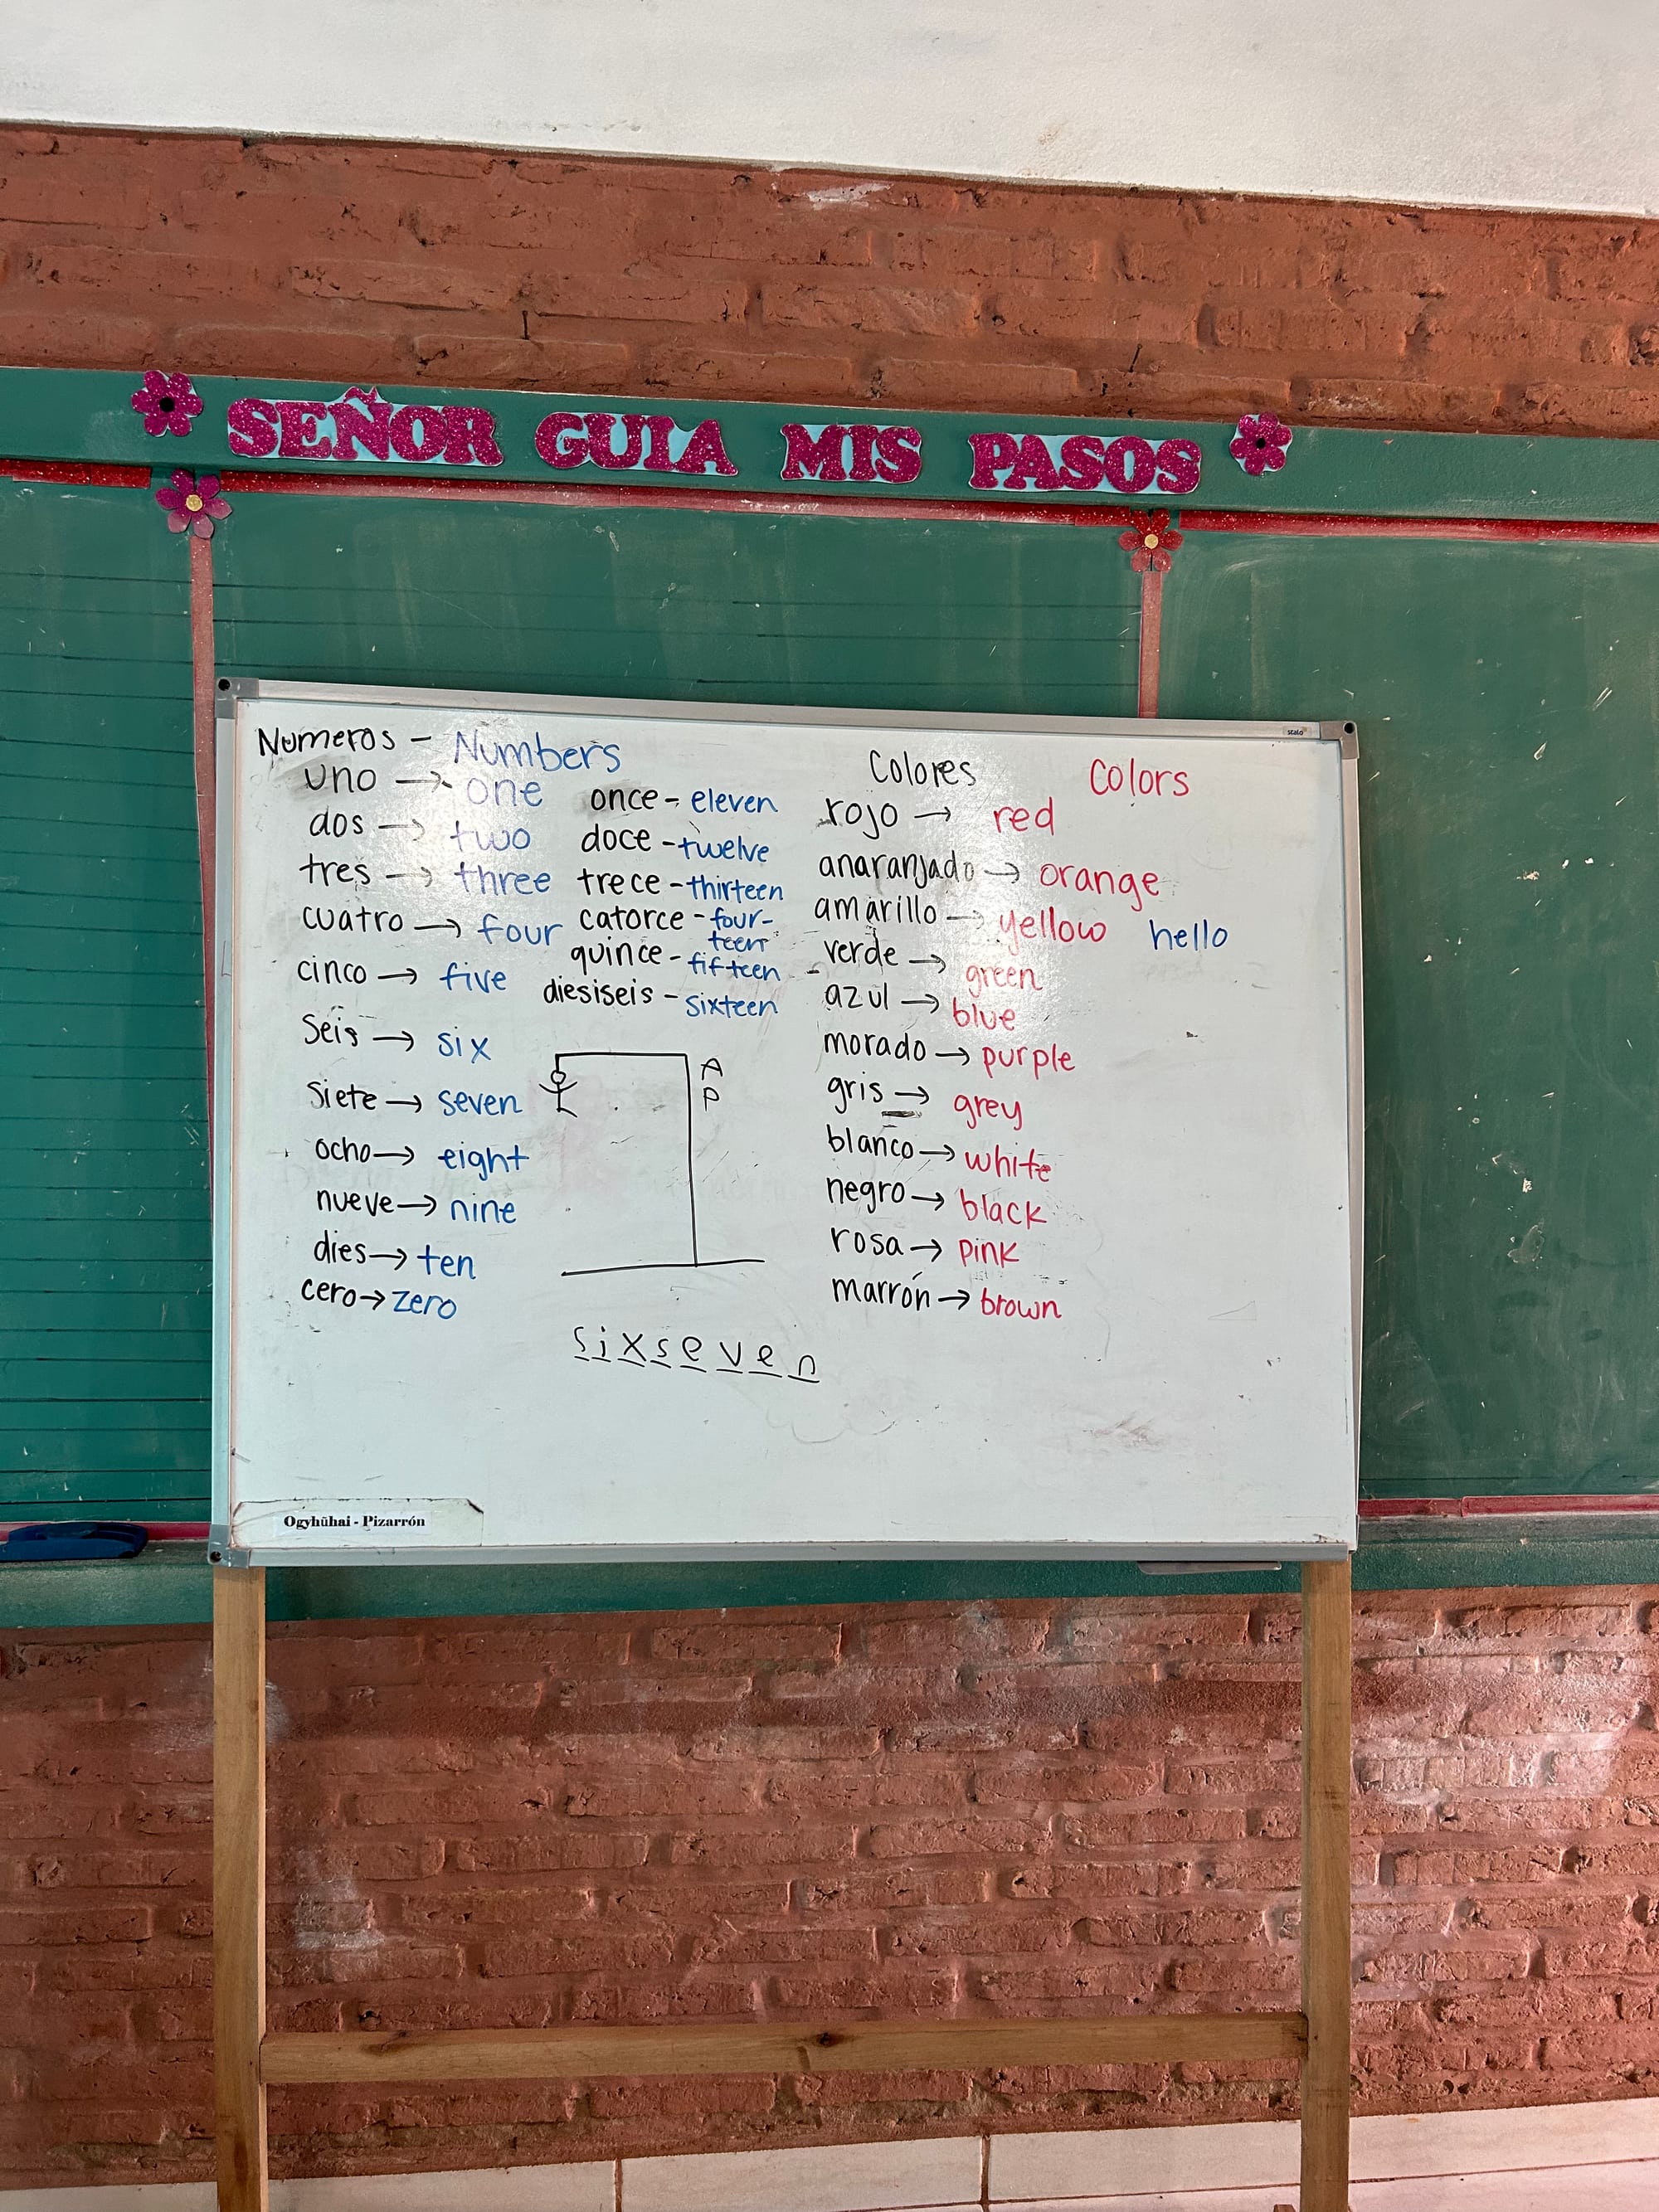 SEÑOR GUIA MIS PASOS
stalo
Numeros - Numbers
uno → one
dos → two
tres → three
cuatro → four
cinco → five
Seis → six
siete → seven
ocho → eight
nueve → nine
dies → ten
cero → zero
once - eleven
doce - twelve
trece - thirteen
catorce - four-
teen
quince - fifteen
diesiseis - sixteen
A
P
sixseven
Colores Colors
rojo → red
anaranjado → orange
amarillo → yellow hello
verde → green
azul → blue
morado → purple
gris → grey
blanco → white
negro → black
rosa → pink
marrón → brown
Ogyhũhai - Pizarrón